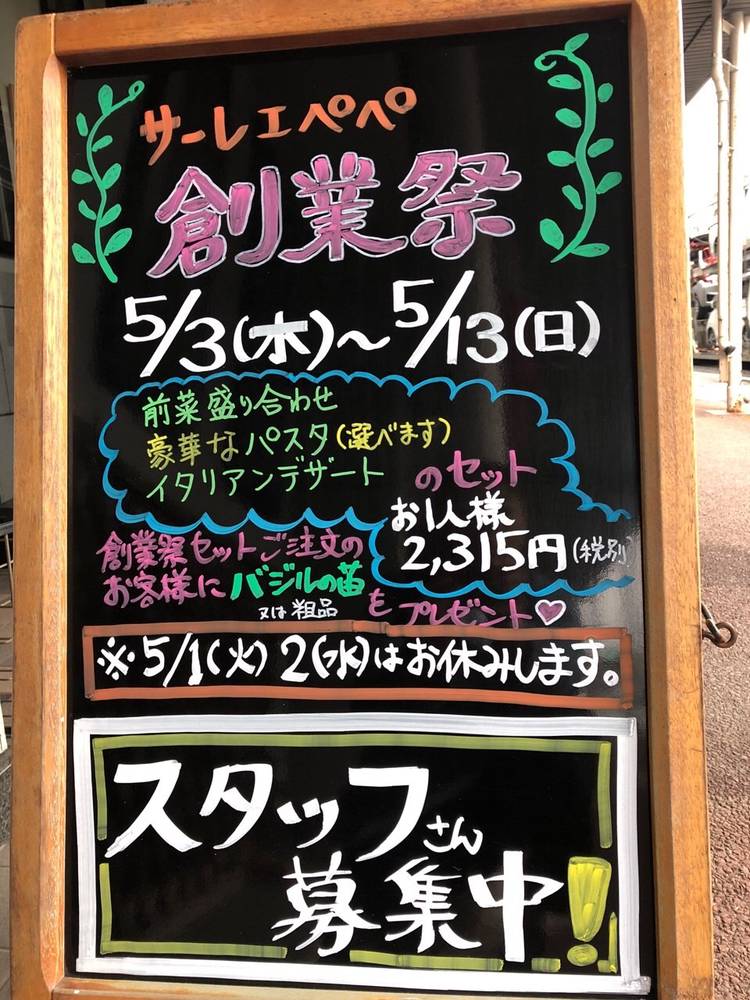 サーレエペペ
創業祭
5/3(木)～5/13(日)
前菜盛り合わせ
豪華なパスタ(選べます)
イタリアンデザート
のセット
お1人様
2,315円(税別)
創業祭セットご注文の
お客様にバジルの苗
又は粗品
をプレゼント♡
※5/1(火)2(水)はお休みします。
スタッフさん
募集中!